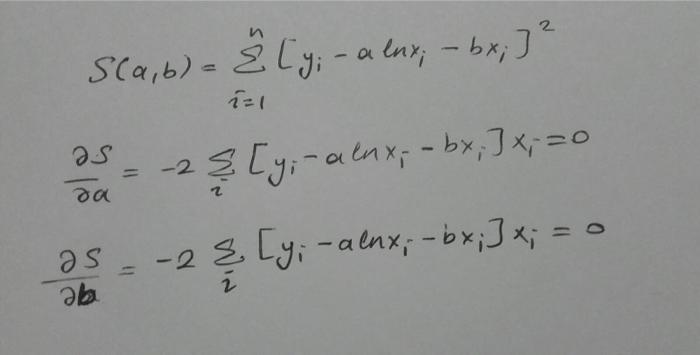 S(a,b) = Σ_{i=1}^{n} [y_i - a ln x_i - b x_i]^2
∂S/∂a = -2 Σ_i [y_i - a ln x_i - b x_i] x_i = 0
∂S/∂b = -2 Σ_i [y_i - a ln x_i - b x_i] x_i = 0